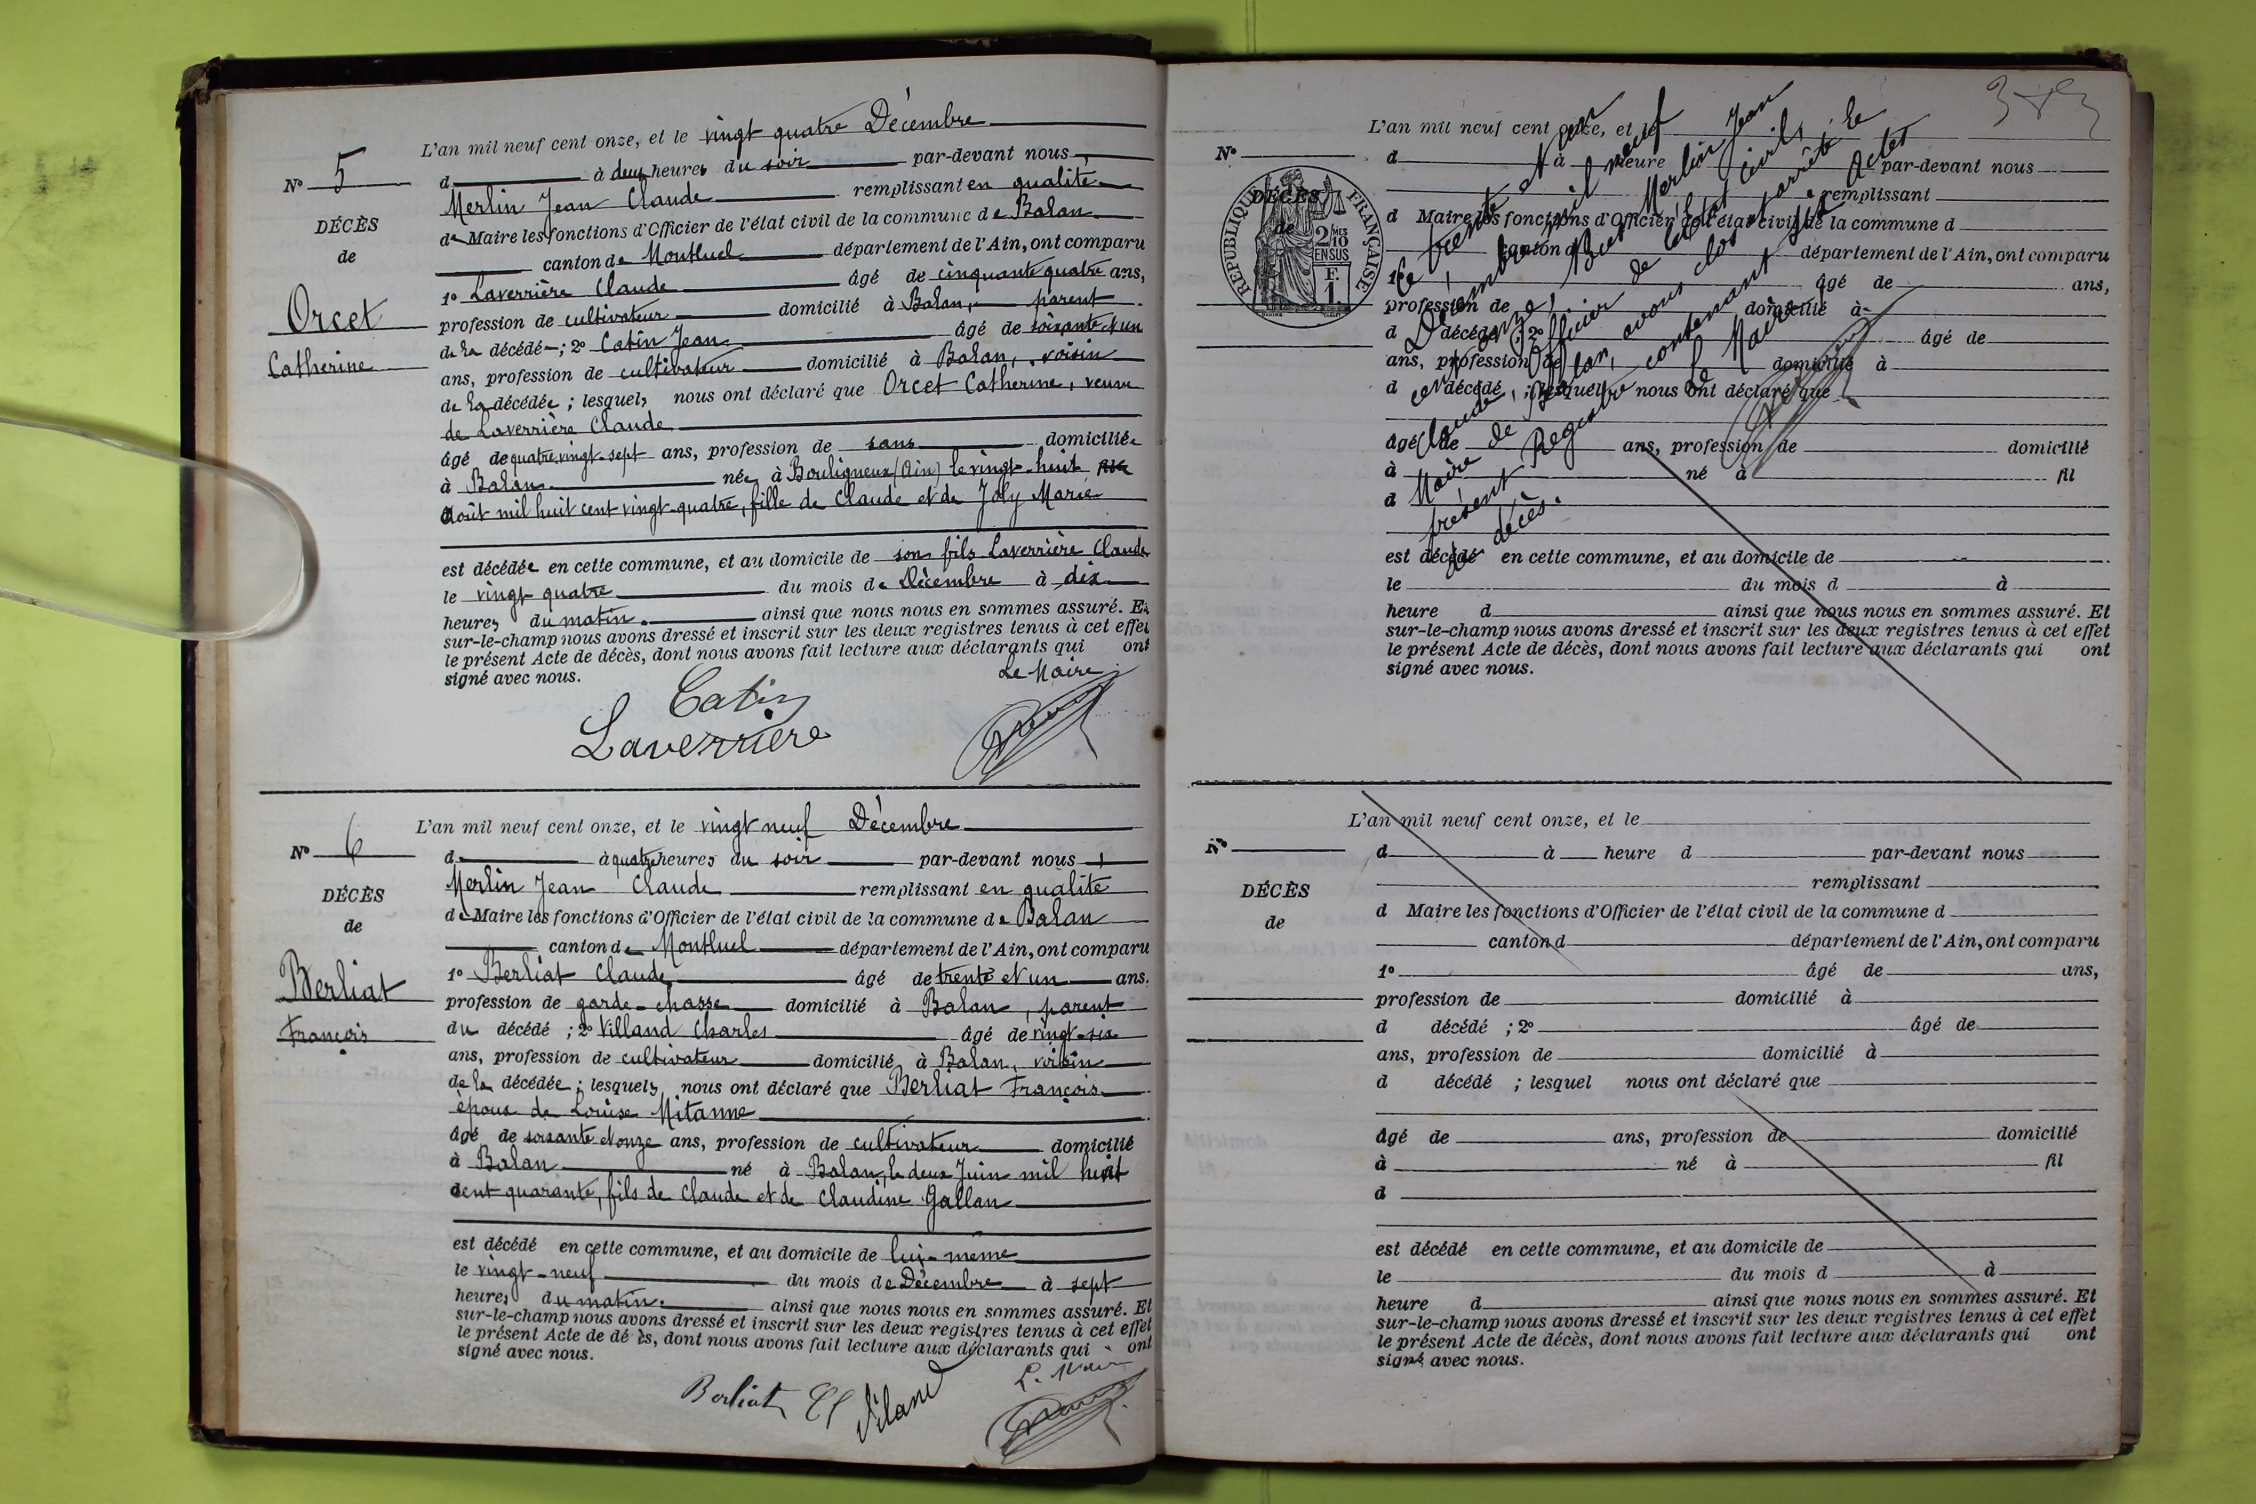 L'an mil neuf cent onze, et le vingt quatre Décembre
N° 5
d à deux heures du soir par-devant nous,
Merlin Jean Claude remplissant en qualité
DÉCÈS
de Maire les fonctions d'Officier de l'état civil de la commune de Balan
de
canton de Montluel département de l'Ain, ont comparu
1° Laverrière Claude âgé de cinquante quatre ans,
Orcet
profession de cultivateur domicilié à Balan, parent
Catherine
de la décédé ; 2° Catin Jean âgé de soixante et un
ans, profession de cultivateur domicilié à Balan, voisin
de la décédée ; lesquels nous ont déclaré que Orcet Catherine, veuve
de Laverrière Claude
âgé de quatre vingt-sept ans, profession de sans domiciliée
à Balan née à Bouligneux (Ain) le vingt-huit
Août mil huit cent vingt-quatre, fille de Claude et de Joly Marie
est décédée en cette commune, et au domicile de son fils Laverrière Claude
le vingt quatre du mois de Décembre à dix
heures du matin. ainsi que nous nous en sommes assuré. Et
sur-le-champ nous avons dressé et inscrit sur les deux registres tenus à cet effet
le présent Acte de décès, dont nous avons fait lecture aux déclarants qui ont
signé avec nous.
Le Maire
Catin
Laverrière
L'an mil neuf cent onze, et le vingt neuf Décembre
N° 6
d à quatre heures du soir par-devant nous,
Merlin Jean Claude remplissant en qualité
DÉCÈS
de Maire les fonctions d'Officier de l'état civil de la commune de Balan
de
canton de Montluel département de l'Ain, ont comparu
1° Berliat Claude âgé de trente et un ans.
Berliat
profession de garde-chasse domicilié à Balan, parent
François
du décédé ; 2° Villand Charles âgé de vingt-six
ans, profession de cultivateur domicilié à Balan, voisin
de la décédée ; lesquels nous ont déclaré que Berliat François
époux de Louise Mitanne
âgé de soixante et onze ans, profession de cultivateur domicilié
à Balan né à Balan, le deux Juin mil huit
cent quarante, fils de Claude et de Claudine Gallan
est décédé en cette commune, et au domicile de lui-même
le vingt-neuf du mois de Décembre à sept
heures du matin. ainsi que nous nous en sommes assuré. Et
sur-le-champ nous avons dressé et inscrit sur les deux registres tenus à cet effet
le présent Acte de dé ès, dont nous avons fait lecture aux déclarants qui ont
signé avec nous.
Berliat Cl Viland
L'an mil neuf cent onze, et le
N°
d à heure par-devant nous
DÉCÈS
remplissant
de
d Maire les fonctions d'Officier de l'état civil de la commune d
canton d département de l'Ain, ont comparu
1° âgé de ans,
profession de domicilié à
d décédé ; 2° âgé de
ans, profession de domicilié à
d décédé ; lesquel nous ont déclaré que
âgé de ans, profession de domicilié
à né à fil
d
est décédé en cette commune, et au domicile de
le du mois d à
heure d ainsi que nous nous en sommes assuré. Et
sur-le-champ nous avons dressé et inscrit sur les deux registres tenus à cet effet
le présent Acte de décès, dont nous avons fait lecture aux déclarants qui ont
signé avec nous.
RÉPUBLIQUE FRANÇAISE
2/10 MES
EN SUS
F.
1.
Ce trente et un
Décembre mil neuf
cent onze, Merlin Jean
Claude, Officier de l'état civil,
Maire de Balan, avons clos et arrêté le
présent Registre contenant Actes
de décès.
Le Maire
L'an mil neuf cent onze, et le
N°
d à heure d par-devant nous
DÉCÈS
remplissant
de
d Maire les fonctions d'Officier de l'état civil de la commune d
canton d département de l'Ain, ont comparu
1° âgé de ans,
profession de domicilié à
d décédé ; 2° âgé de
ans, profession de domicilié à
d décédé ; lesquel nous ont déclaré que
âgé de ans, profession de domicilié
à né à fil
d
est décédé en cette commune, et au domicile de
le du mois d à
heure d ainsi que nous nous en sommes assuré. Et
sur-le-champ nous avons dressé et inscrit sur les deux registres tenus à cet effet
le présent Acte de décès, dont nous avons fait lecture aux déclarants qui ont
signé avec nous.